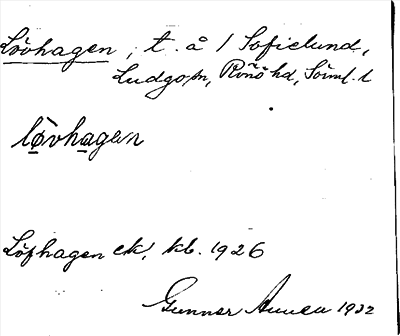 Lövhagen, t. å / Sofielund,
Ludgo sn, Rönö hd, Söml. l
lövhagen
Löfhagen ek, kb. 1926
Gunnar 1932